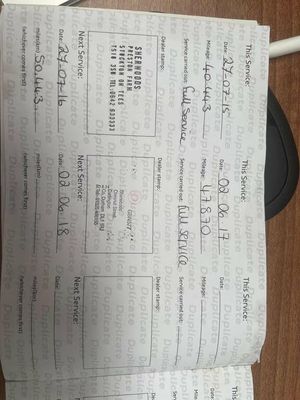 This Service:
Date: 27-07-15
Mileage: 40443
Service carried out: full service
Dealer stamp:
SHERWOODS
PRESTON FARM
STOCKTON ON TEES
TS18 3SG TEL.0642
Next Service:
Date: 27.07-16
miles(km) 50.443
(whichever comes first)
This Service:
Date: 02 06 17
Mileage: 47870
Service carried out: full service
Dealer stamp:
Next Service:
Date: 02 06 18
miles(km)
(whichever comes first)
This Service:
Date:
Mileage:
Service carried out:
Dealer stamp:
Next Service:
Date:
miles(km)
(whichever comes first)
Duplicate